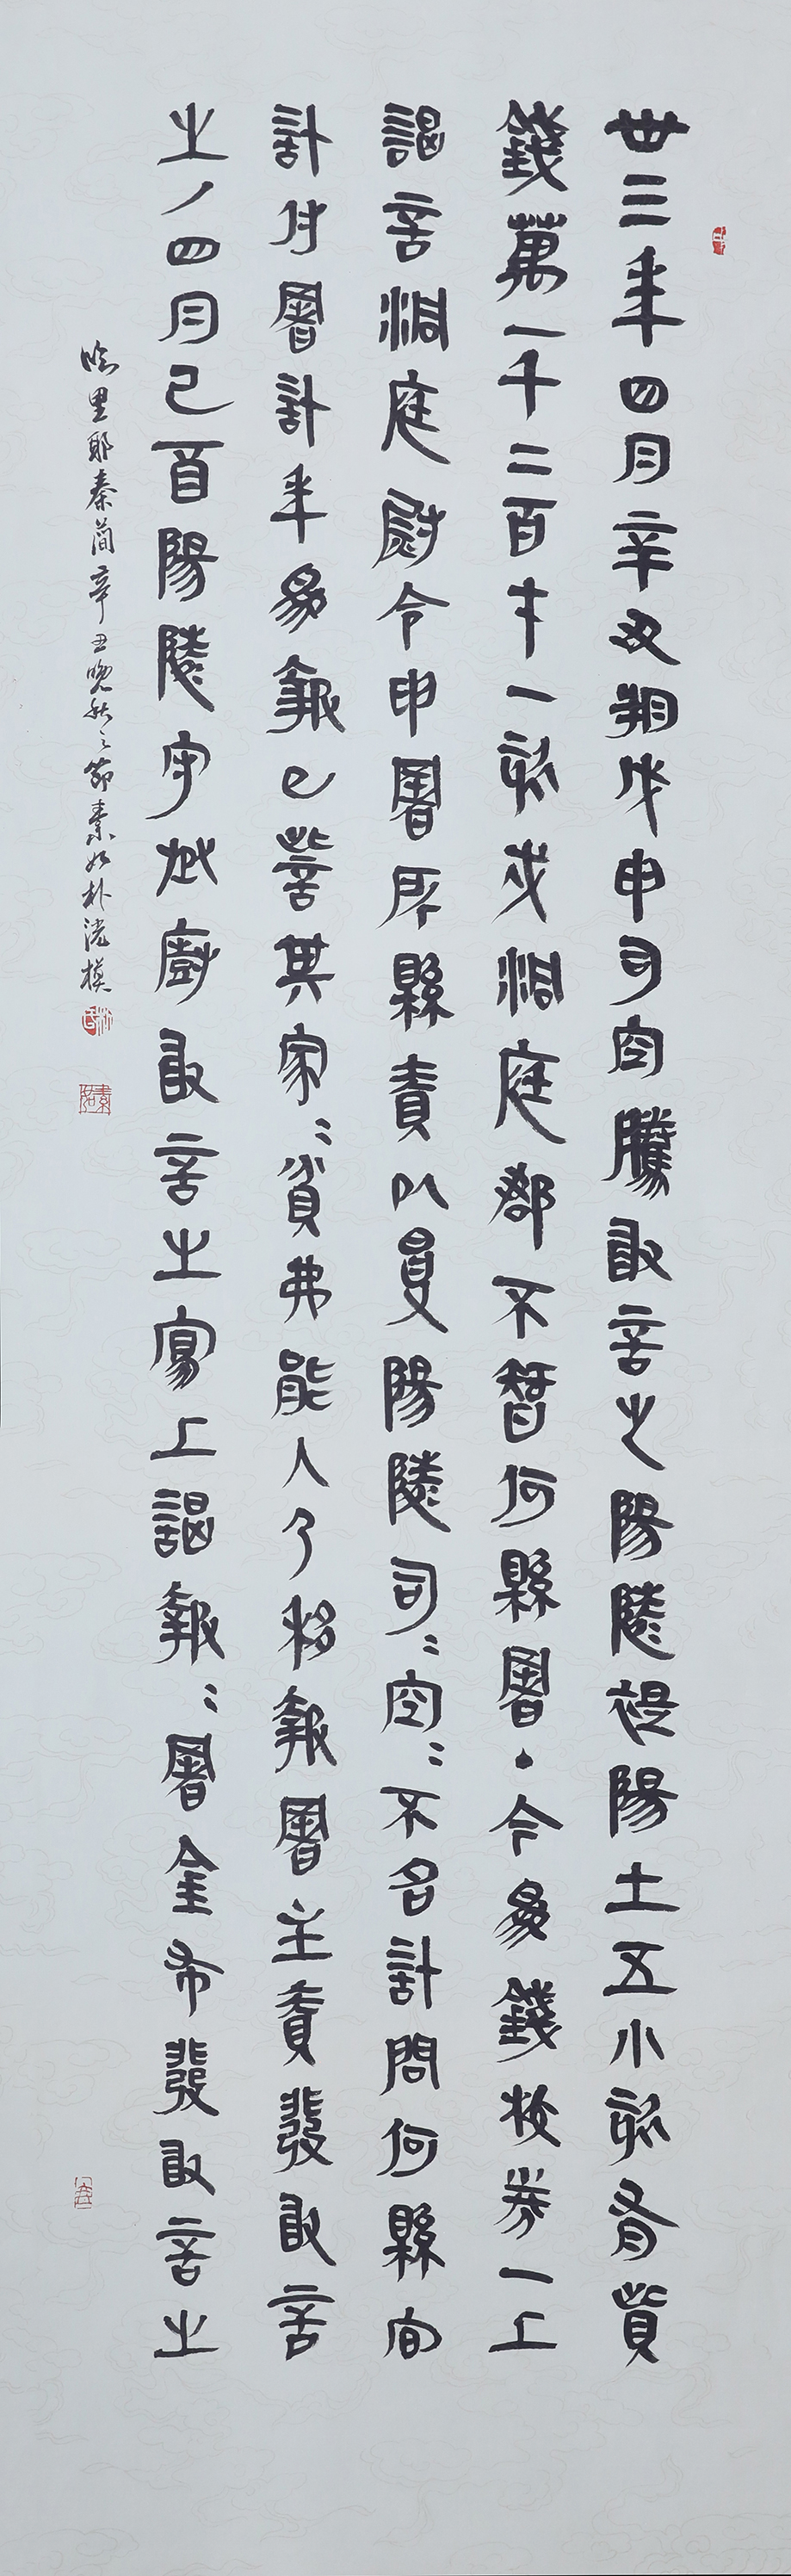 卅三年四月辛丑朔戊申司空騰敢言之陽陵禔陽士五小欬有貲
錢萬一千二百七十一欬戍洞庭郡不智何縣署・今為錢校券一上
謁言洞庭尉令申署所縣責以受陽陵司〻空〻不名計問何縣官
計付署計年為報已訾其家〻貧弗能入乃移報署主責發敢言
之ノ四月己酉陽陵守丞廚敢言之寫上謁報〻署金布發敢言之
臨里耶秦簡辛丑晚秋之節素如朴模